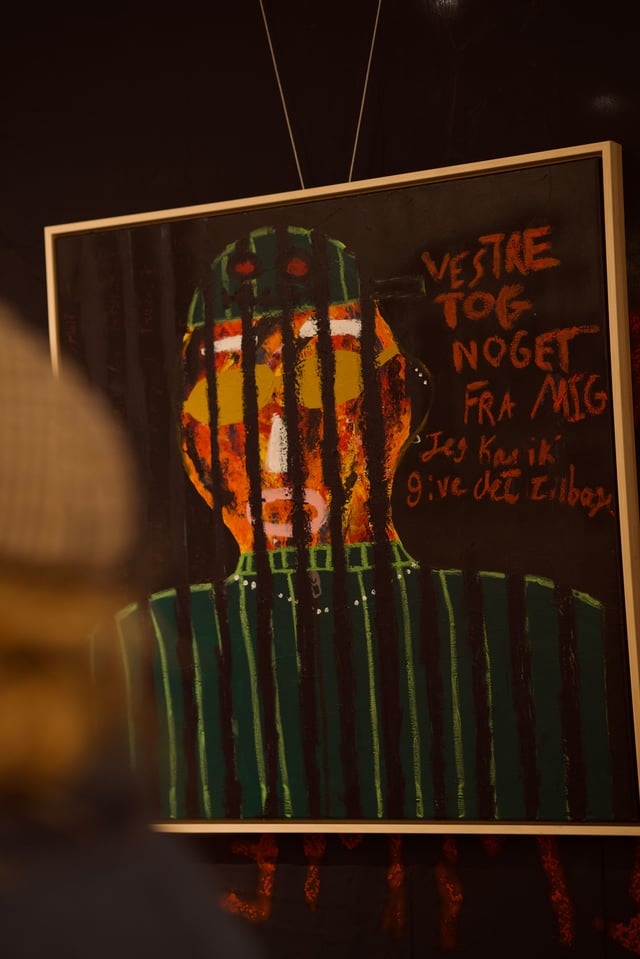 VESTRE
TOG
NOGET
FRA MIG
Jeg Kan ik
give det tilbage